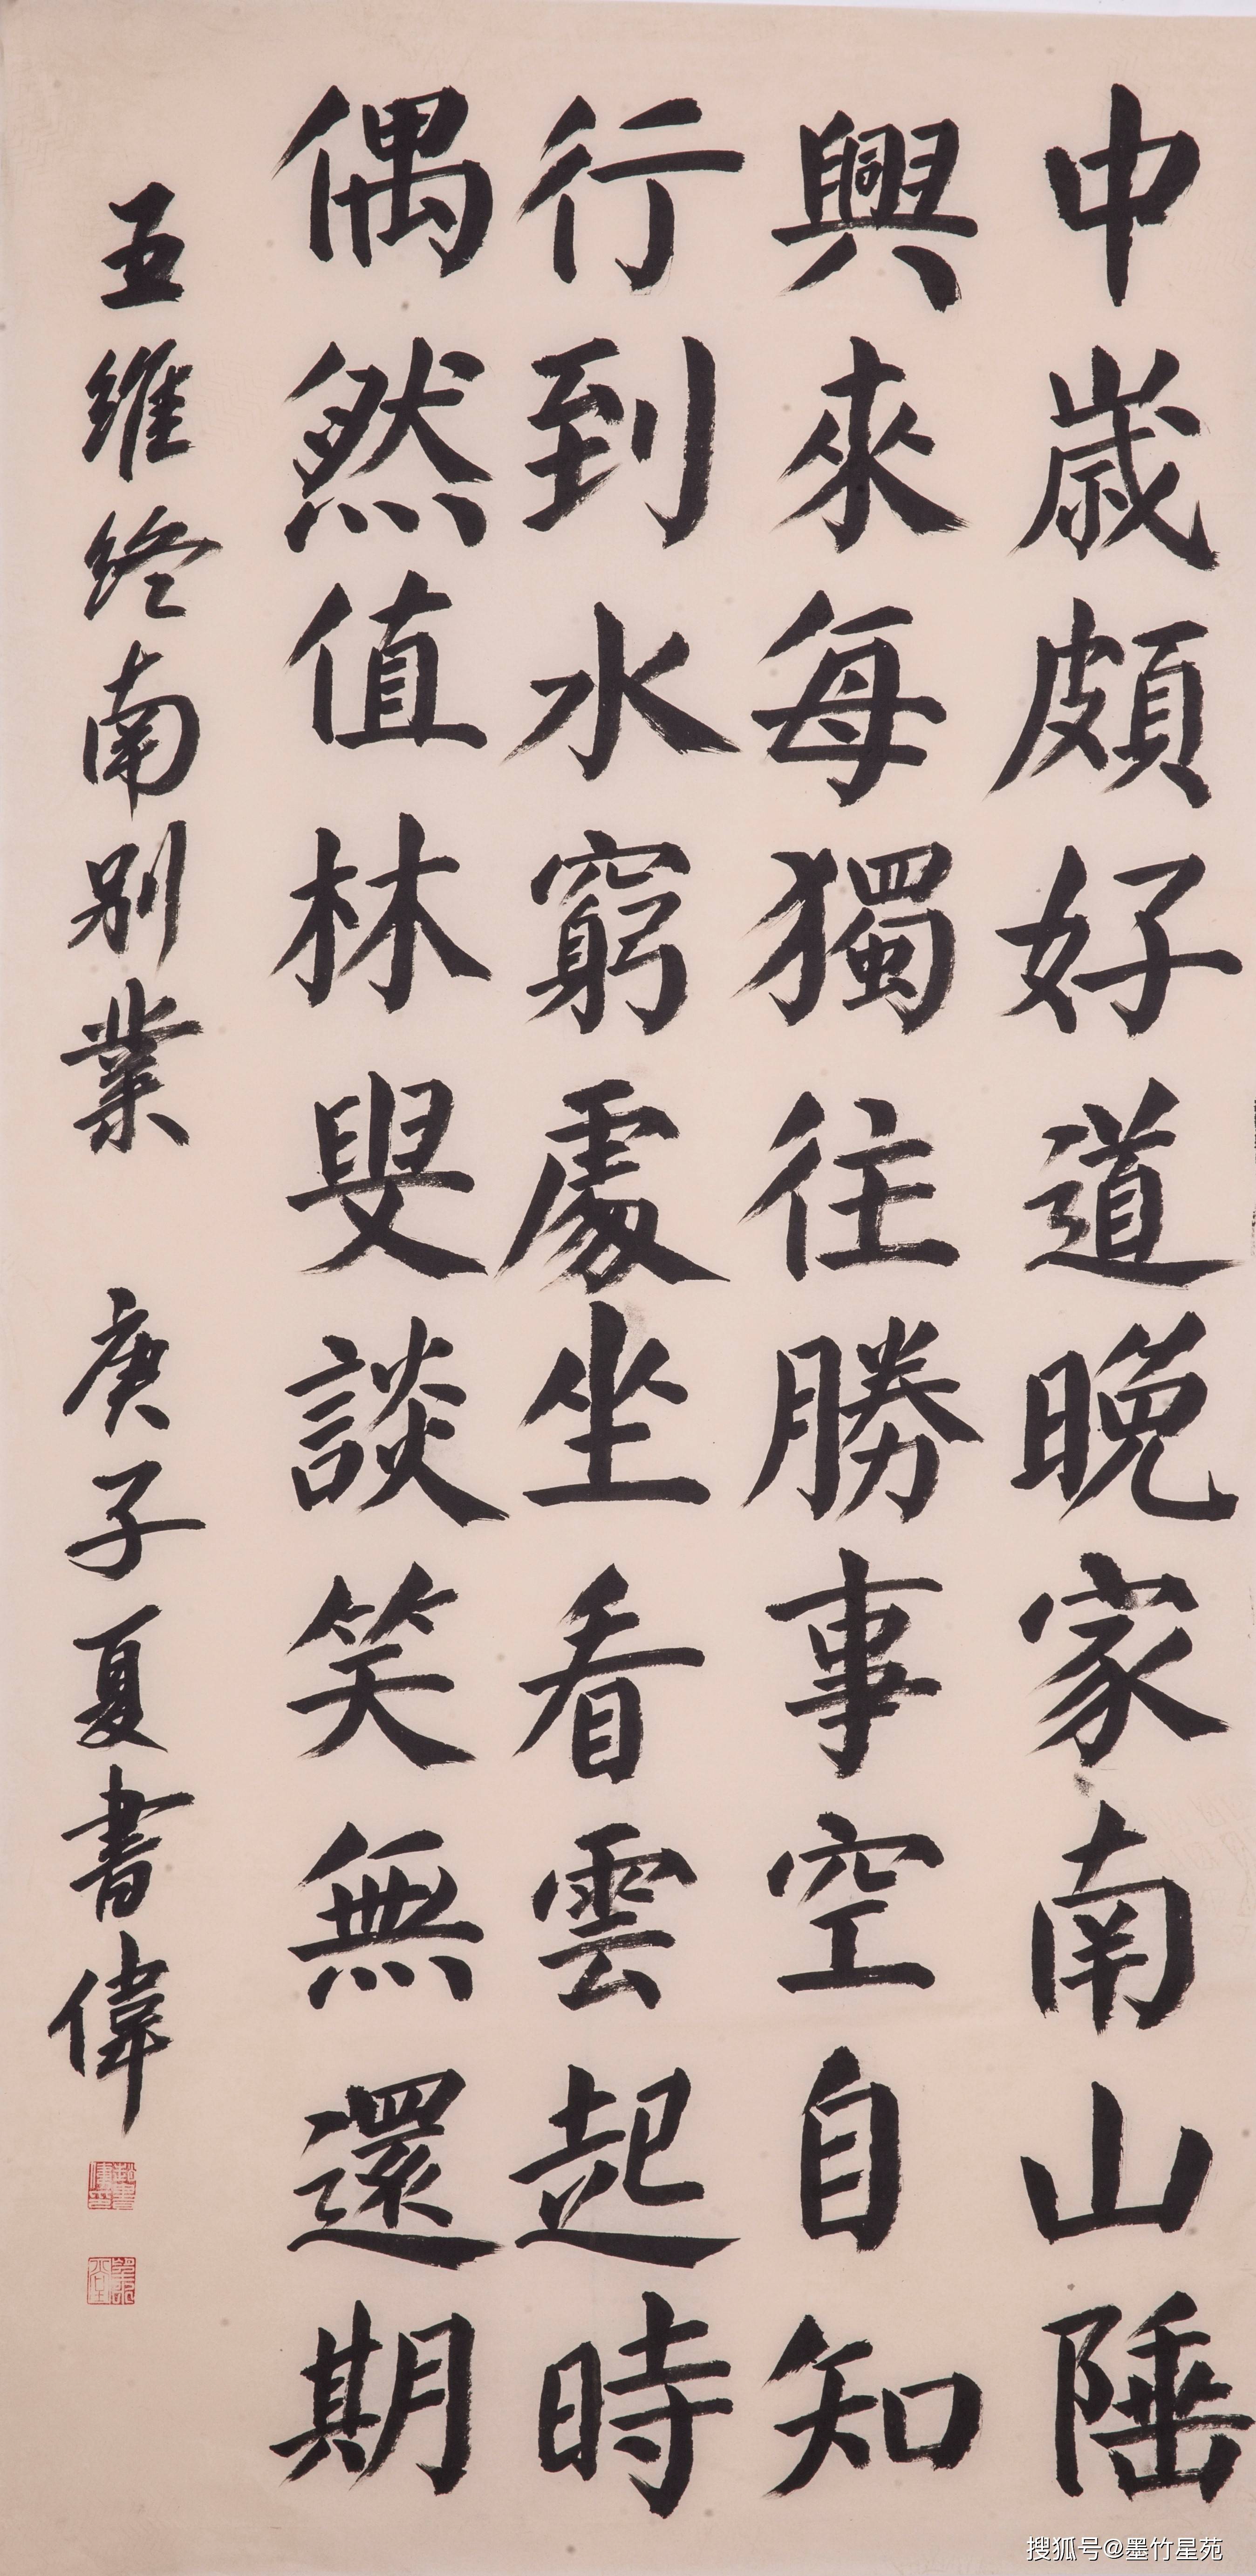 中歲頗好道晚家南山陲
興來每獨往勝事空自知
行到水窮處坐看雲起時
偶然值林叟談笑無還期
王維終南別業 庚子夏書偉
搜狐号@墨竹星苑